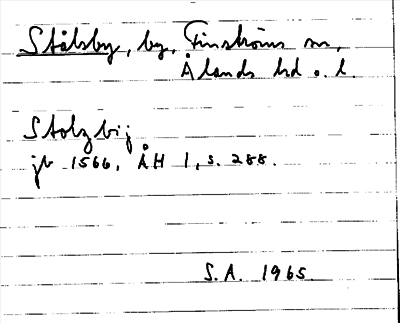 Stålsby, by, Finströms sn,
Ålands hd o. l.
Stolzbij
jb 1566, ÅH 1, s. 288.
S.A. 1965